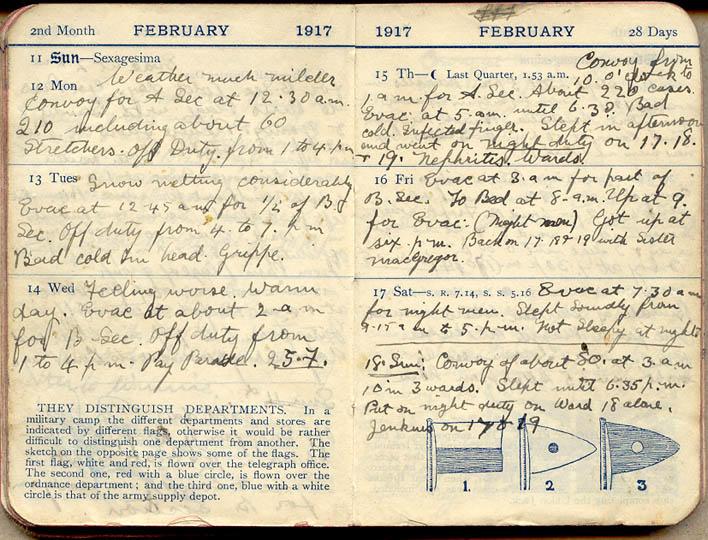 2nd Month FEBRUARY 1917
11 Sun—Sexagesima
Weather much milder
12 Mon
Convoy for A Sec at 12.30 a.m.
210 including about 60
Stretchers. Off Duty from 1 to 4 p.m
13 Tues Snow melting considerably
Evac at 12 45 a m for 1/2 of B
Sec. Off duty from 4 to 7. p m
Bad cold in head. Grippe.
14 Wed Feeling worse. Warm
day. Evac at about 2 a m
for B Sec. Off duty from
1 to 4 p.m. Pay Parade. 25.7.
THEY DISTINGUISH DEPARTMENTS. In a
military camp the different departments and stores are
indicated by different flags, otherwise it would be rather
difficult to distinguish one department from another. The
sketch on the opposite page shows some of the flags. The
first flag, white and red, is flown over the telegraph office.
The second one, red with a blue circle, is flown over the
ordnance department; and the third one, blue with a white
circle is that of the army supply depot.
1917 FEBRUARY 28 Days
Convoy from
15 Th—☾ Last Quarter, 1.53 a.m. 10. O'clock to
1 a m for A. Sec. About 220 cases.
Evac. at 5 a.m. until 6.30. Bad
cold. Infected finger. Slept in afternoon
and went on night duty on 17. 18.
+ 19. Nephritis Wards.
16 Fri Evac at 3. a m for part of
B. Sec. To Bed at 8 a.m. Up at 9.
for Evac. (Night men) Got up at
six p.m. Back on 17. 18 & 19 with Sister
MacGregor.
17 Sat—S. R. 7.14, S. S. 5.16 Evac at 7.30 a m
for night men. Slept soundly from
9.15 a m to 5 p.m. Not sleepy at night
18. Sun: Convoy of about 80. at 3. a m
10 in 3 wards. Slept until 6.35 p.m.
Put on night duty on Ward 18 alone.
Jenkins on 17 & 19
1. 2 3